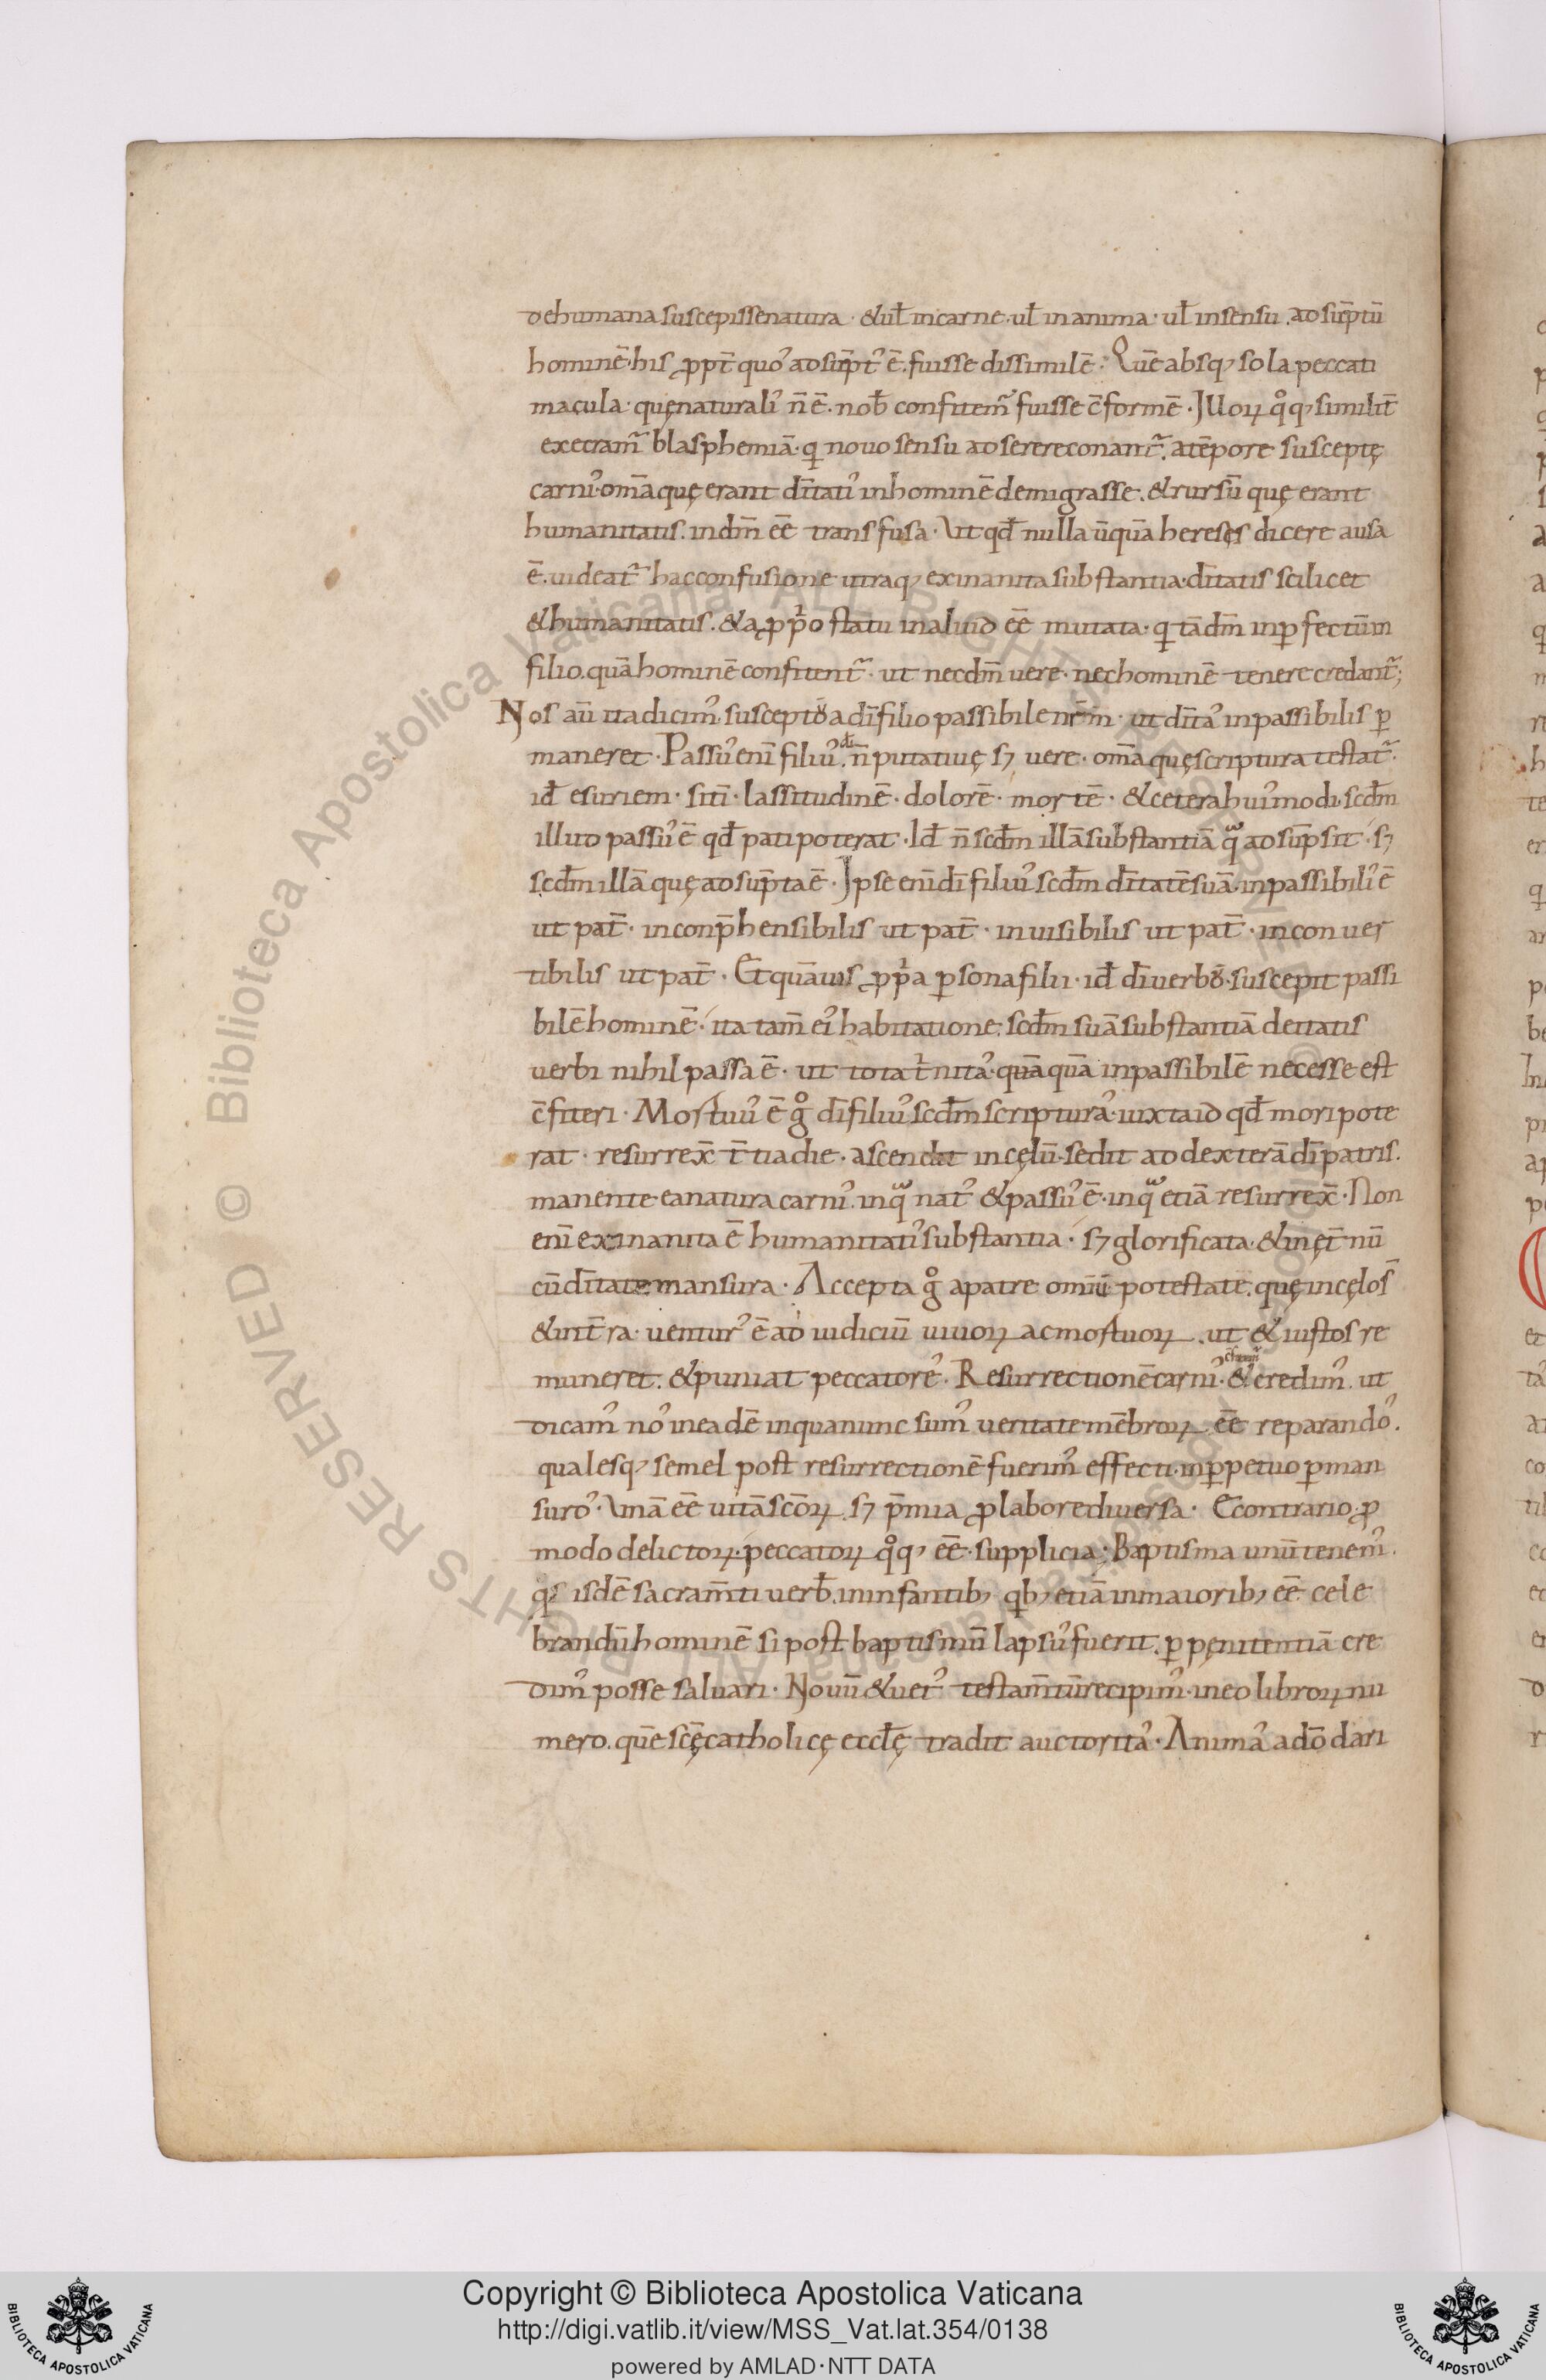 de humana suscepisse natura · & ul̄ in carne · ul̄ in anima · ul̄ in sensu . adsūptū
hominē · his ꝓpt̄ quoꝰ adsūptꝰ ē . fuisse dissimilē · Quē absq; sola peccati
macula · quę naturaliꝰ n̄ ē . nob̄ confitem᷑ fuisse c̄formē · Illoꝝ qͦq; similit̄
execram᷑ blasphemiā · q novo sensu adserere conant᷑ . a tēpore susceptę
carniꝰ om̄a quę erant dītatiꝰ in hominē demigrasse . & rursū quę erant
humanitatis . in dm̄ eē transfusa · Ut qd̄ nulla ūquā hereses dicere ausa
ē . videat᷑ hac confusione utraq; exinanita substantia · dītatis scilicet
& humanitatis . & a ꝓpⁱo statu in aluid eē mutata · q tā dm̄ inꝑfectū in
filio . quā hominē confitent᷑ · ut nec dm̄ vere · nec hominē tenere credant᷑;
Nos aū ita dicimꝰ susceptū a dī filio passibile nrm̄ · ut dītaꝰ inpassibilis ꝑ
maneret · Passuꝰ enī filiuꝰ dī . n̄ putativę sꝫ vere · om̄a quę scriptura testat᷑ ·
id̄ esuriem · sitī · lassitudinē · dolorē · mortē · & cetera huiꝰmodi · scd̄m
illud passuꝰ ē qd̄ pati poterat · Id̄ n̄ scd̄m illā substantiā q̄ adsūpsit · sꝫ
scd̄m illā quę adsūpta ē · Ipse enī dī filiuꝰ scd̄m dītatē suā · inpassibiliꝰ ē
ut pat̄ · inconp̄hensibilis ut pat̄ · invisibilis ut pat̄ · inconver
tibilis ut pat̄ · Et quāvis ꝓpⁱa ꝑsona filii · id̄ dī verbū · suscepit passi
bilē hominē · ita tam̄ eiꝰ habitatione · scd̄m suā substantiā deitatis
verbi nihil passa ē · ut tota tⁱnitaꝰ · quā quā inpassibilē necesse est
c̄fiteri · Mortuuꝰ ē gͦ dī filiuꝰ scd̄m scripturaꝰ · iuxta id qd̄ mori pote
rat · resurrex̄ t̄tia die · ascendit in cęlū · sedit ad dexterā dī patris ·
manente ea natura carniꝰ in q̄ natꝰ & passuꝰ ē · in q̄ etiā resurrex̄ · Non
enī exinanita ē humanitatiꝰ substantia · sꝫ glorificata · & in ęt̄nū
cū dītate mansura · Accepta gͦ a patre omniū potestate . quę in cęlos̄
& in t̄ra · venturꝰ ē ad iudiciū vivoꝝ ac mortuoꝝ . ut & iustos re
muneret . & puniat peccatoreꝰ · Resurrectionē carniꝰ · & credimꝰ . ut
dicamꝰ noꝰ in eadē in qua nunc sumꝰ veritate mēbroꝝ eē reparandoꝰ .
qualesq; semel post resurrectionē fuerimꝰ effecti · in ꝑpetuo ꝑman
suroꝰ · Unā eē vitā scōꝝ . sꝫ p̄mia ꝓ labore diversa · E contrario ꝓ
modo delictoꝝ · peccatoꝝ qͦq; eē · supplicia · Baptisma unū tenemꝰ .
qͦs isdē sacram̄ti verb̄ . in infantib; qb; etiā in maiorib; eē cele
brandū hominē si post baptismū lapsuꝰ fuerit . ꝑ pęnitentiā cre
dimꝰ posse salvari · Novū & vetꝰ testam̄tū recipimꝰ · in eo libroꝝ nu
mero . quē scę̄ catholicę eccl̄ę tradit auctoritaꝰ · Animaꝰ a dō dari
Copyright © Biblioteca Apostolica Vaticana
http://digi.vatlib.it/view/MSS_Vat.lat.354/0138
powered by AMLAD · NTT DATA